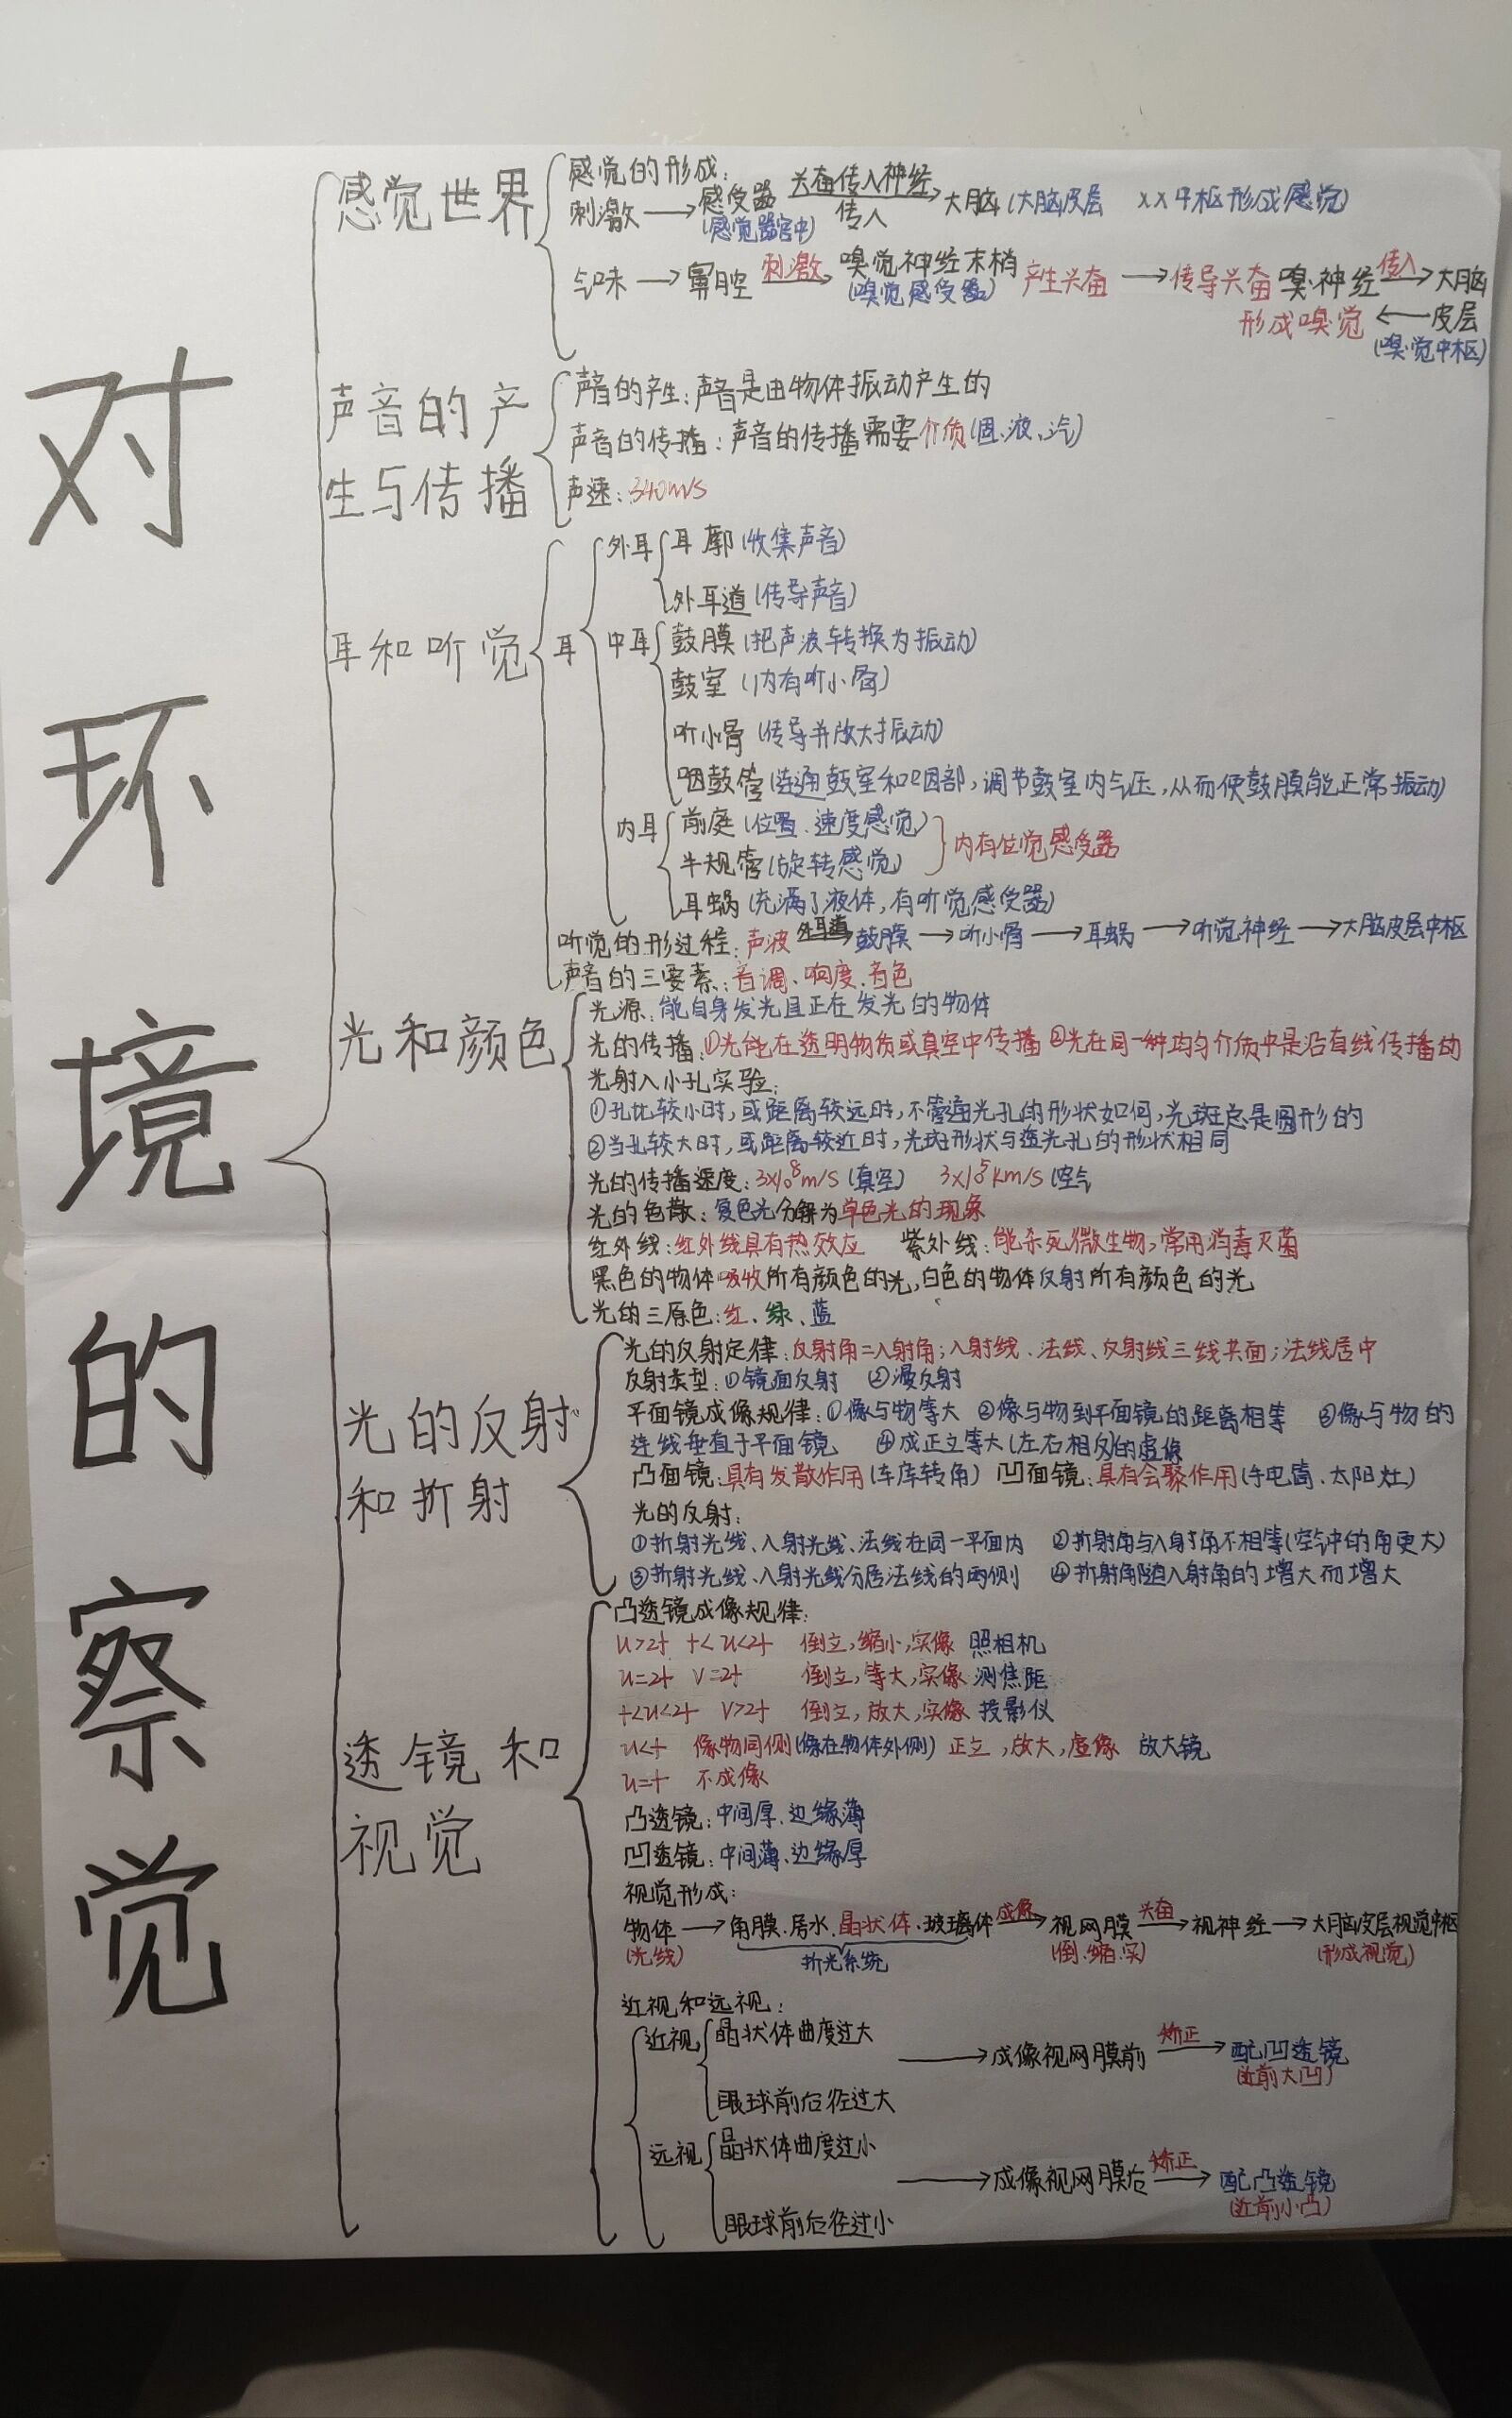 对环境的察觉
感觉世界
感觉的形成:
刺激→感受器 兴奋传入神经→大脑(大脑皮层 xx中枢形成感觉)
(感觉器官中) 传入
气味→鼻腔 刺激→嗅觉神经末梢 产生兴奋→传导兴奋 嗅神经 传入→大脑
(嗅觉感受器)
形成嗅觉←皮层
(嗅觉中枢)
声音的产
生与传播
声音的产生:声音是由物体振动产生的
声音的传播:声音的传播需要介质(固、液、汽)
声速:340m/s
耳和听觉
耳
外耳
耳廓(收集声音)
外耳道(传导声音)
中耳
鼓膜(把声波转换为振动)
鼓室(内有听小骨)
听小骨(传导并放大振动)
咽鼓管(连通鼓室和咽部,调节鼓室内气压,从而使鼓膜能正常振动)
内耳
前庭(位置、速度感觉)
半规管(旋转感觉)
内有位觉感受器
耳蜗(充满了液体,有听觉感受器)
听觉的形过程:声波 外耳道→鼓膜→听小骨→耳蜗→听觉神经→大脑皮层中枢
声音的三要素:音调、响度、音色
光和颜色
光源:能自身发光且正在发光的物体
光的传播:①光能在透明物质或真空中传播 ②光在同一种均匀介质中是沿直线传播的
光射入小孔实验:
①孔比较小时,或距离较远时,不管通光孔的形状如何,光斑总是圆形的
②当孔较大时,或距离较近时,光斑形状与透光孔的形状相同
光的传播速度:3×10⁸m/s(真空) 3×10⁵km/s(空气
光的色散:复色光分解为单色光的现象
红外线:红外线具有热效应 紫外线:能杀死微生物,常用消毒灭菌
黑色的物体吸收所有颜色的光,白色的物体反射所有颜色的光
光的三原色:红、绿、蓝
光的反射
和折射
光的反射定律:反射角=入射角;入射线、法线、反射线三线共面;法线居中
反射类型:①镜面反射 ②漫反射
平面镜成像规律:①像与物等大 ②像与物到平面镜的距离相等 ③像与物的
连线垂直于平面镜 ④成正立等大(左右相反)的虚像
凸面镜:具有发散作用(车库转角) 凹面镜:具有会聚作用(手电筒、太阳灶)
光的反射:
①折射光线、入射光线、法线在同一平面内 ②折射角与入射角不相等(空气中的角更大)
③折射光线、入射光线分居法线的两侧 ④折射角随入射角的增大而增大
透镜和
视觉
凸透镜成像规律:
u>2f f<u<2f 倒立,缩小,实像 照相机
u=2f v=2f 倒立,等大,实像 测焦距
f<u<2f v>2f 倒立,放大,实像 投影仪
u<f 像物同侧(像在物体外侧) 正立,放大,虚像 放大镜
u=f 不成像
凸透镜:中间厚、边缘薄
凹透镜:中间薄、边缘厚
视觉形成:
物体→角膜、房水、晶状体、玻璃体 成像→视网膜 兴奋→视神经→大脑皮层视觉中枢
(光线) 折光系统 (倒、缩、实) (形成视觉)
近视和远视:
近视
晶状体曲度过大
→成像视网膜前 矫正→配凹透镜
(近前大凹)
眼球前后径过大
远视
晶状体曲度过小
→成像视网膜后 矫正→配凸透镜
(近前小凸)
眼球前后径过小